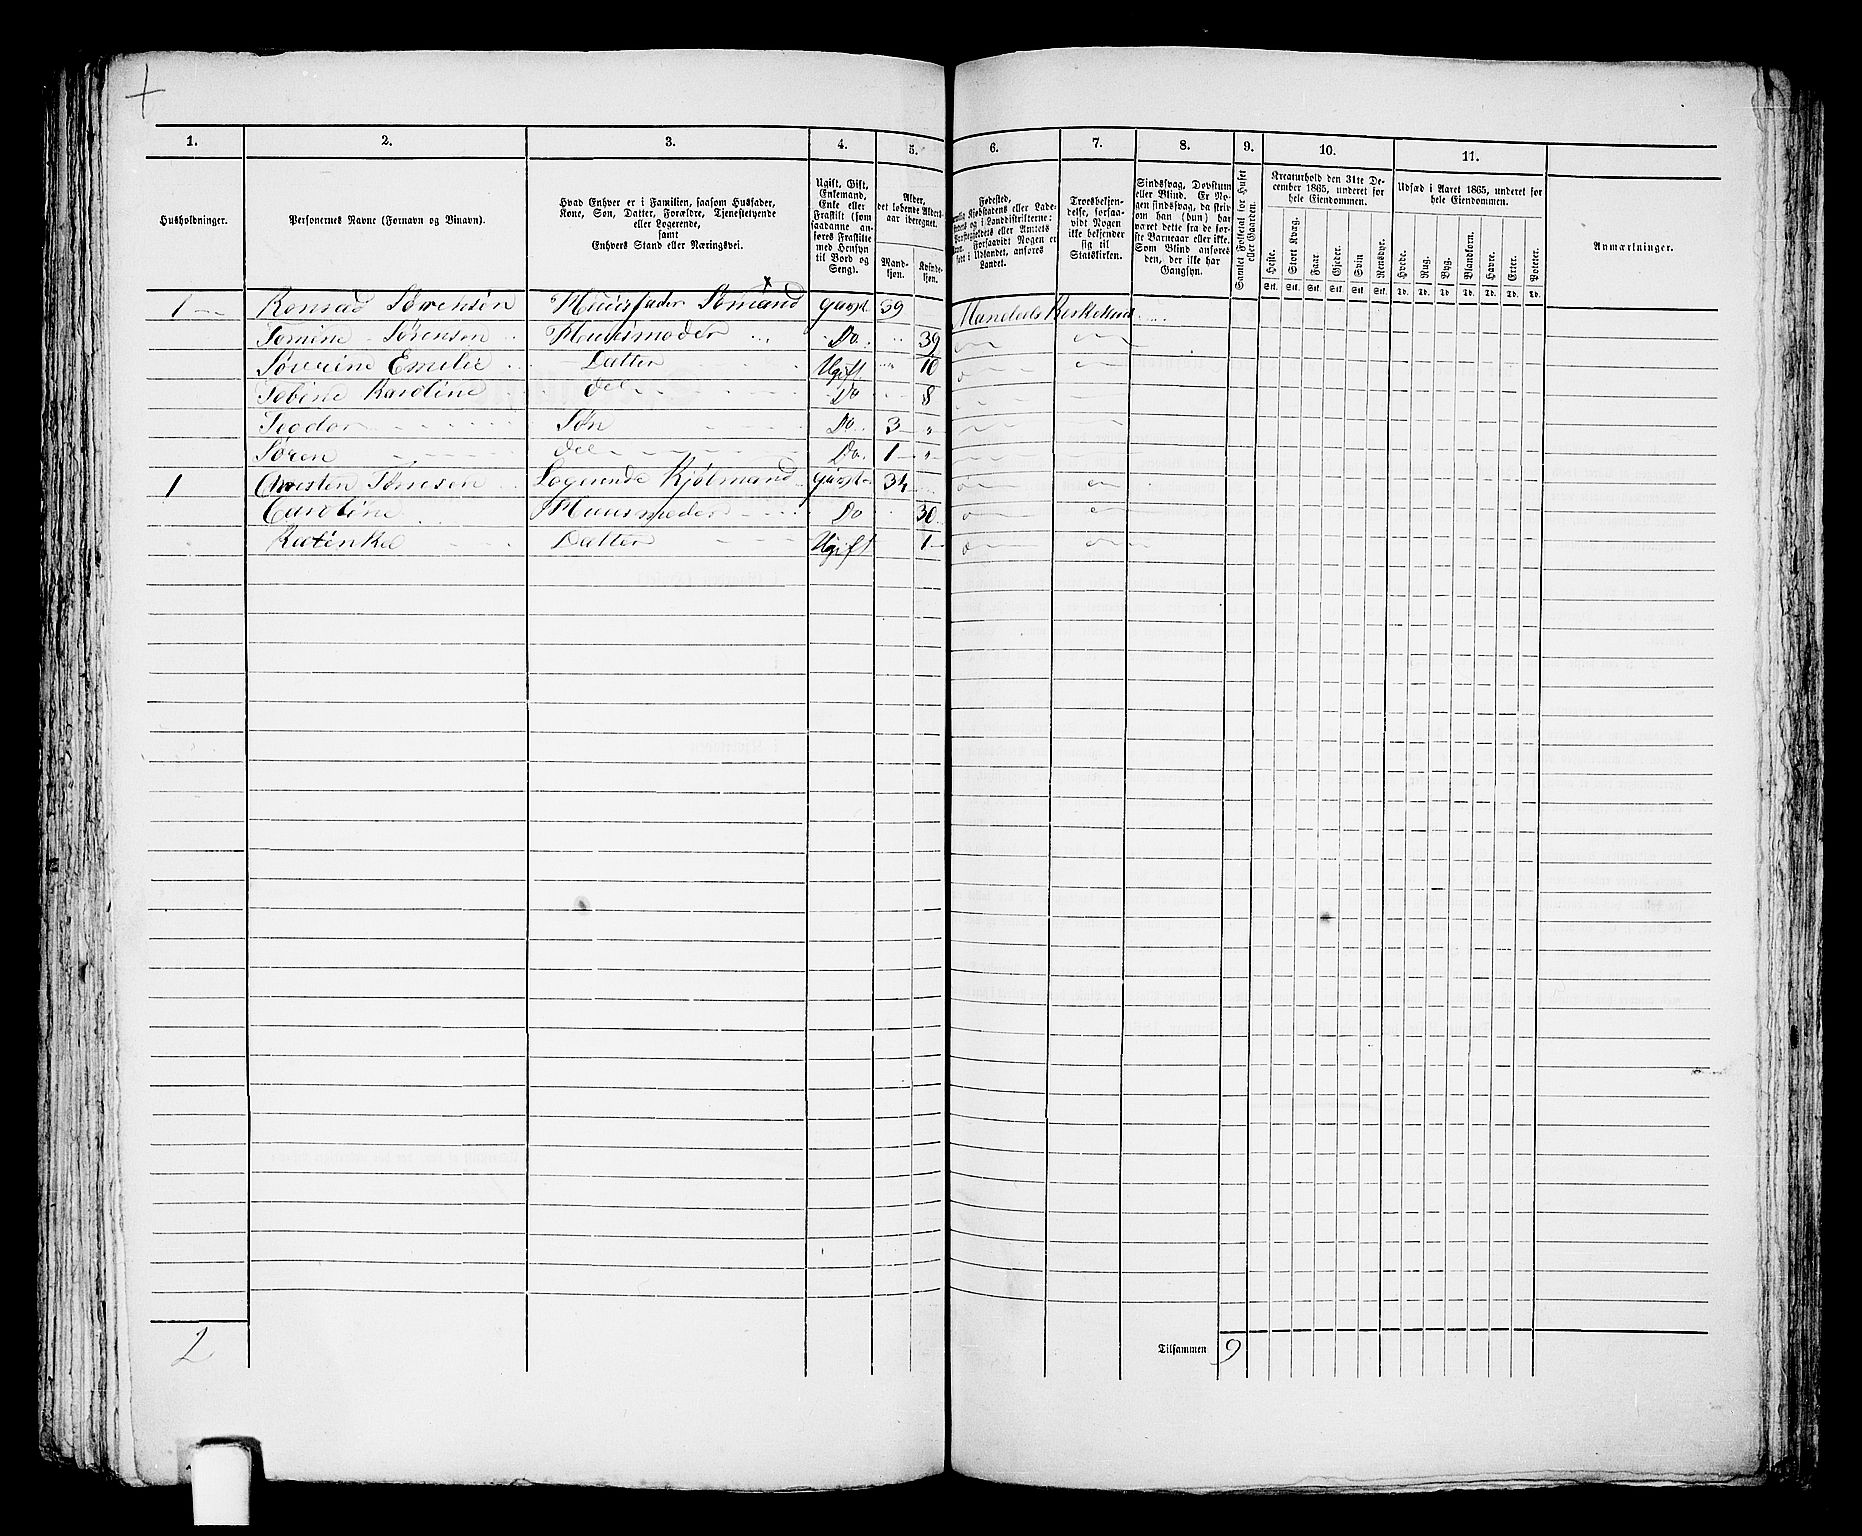 1. 2. 3. 4. 5. 6. 7. 8. 9. 10. 11.
Husholdninger.
Personernes Navne (Fornavn og Binavn).
Hvad Enhver er i Familien, saasom Husfader,
Kone, Søn, Datter, Forældre, Tjenestetyende
eller Logerende,
samt
Enhvers Stand eller Næringsvei.
Ugift, Gift,
Enkemand,
Enke eller
Fraskilt (som
saadanne an-
føres Fraskilte
med Hensyn
til Bord og
Seng).
Alder,
det løbende Alders-
aar iberegnet.
Mand-
kjøn.
Kvinde-
kjøn.
Fødested,
Kjøbstadens eller Lade-
og i Landdistrikterne:
eller Amtets
Forsaavidt Nogen er
født i Udlandet, anføres
Landet.
Troesbekjen-
delse, forsaa-
vidt Nogen
ikke bekjender
sig til
Statskirken.
Sindssvag, Døvstum
eller Blind. Er No-
gen sindssvag, da skriv
om han (hun) har
været dette fra de før-
ste Barneaar eller ikke.
Som Blind anføres
den, der ikke har
Gangsyn.
Samlet Folketal for Huset
eller Gaarden.
Kreaturhold den 31te De-
cember 1865, underet for
hele Eiendommen.
Heste. Stort Kvæg. Faar. Gjeder. Svin Rensdyr.
Stk. Stk. Stk. Stk. Stk. Stk.
Udsæd i Aaret 1865, underet for
hele Eiendommen.
Hvede. Rug. Byg. Blandkorn. Havre. Erter. Poteter.
Td. Td. Td. Td. Td. Td. Td.
Anmærkninger.
1 Konrad Sørensen Huusfader Sømand givpt 39 Mandals Kirkestuis
Tomine Sørensen Huusmoder Do 39
Søverine Emelie Datter Ugift 10
Tobine Karoline do Do 8
Teodor Søn Do 3
Søren do Do 1
1 Christen Tønesen Logerende Kjølmand givpt 34
Caroline Huusmoder Do 30
Katinka Datter Ugift 1
2
Tilsammen 9